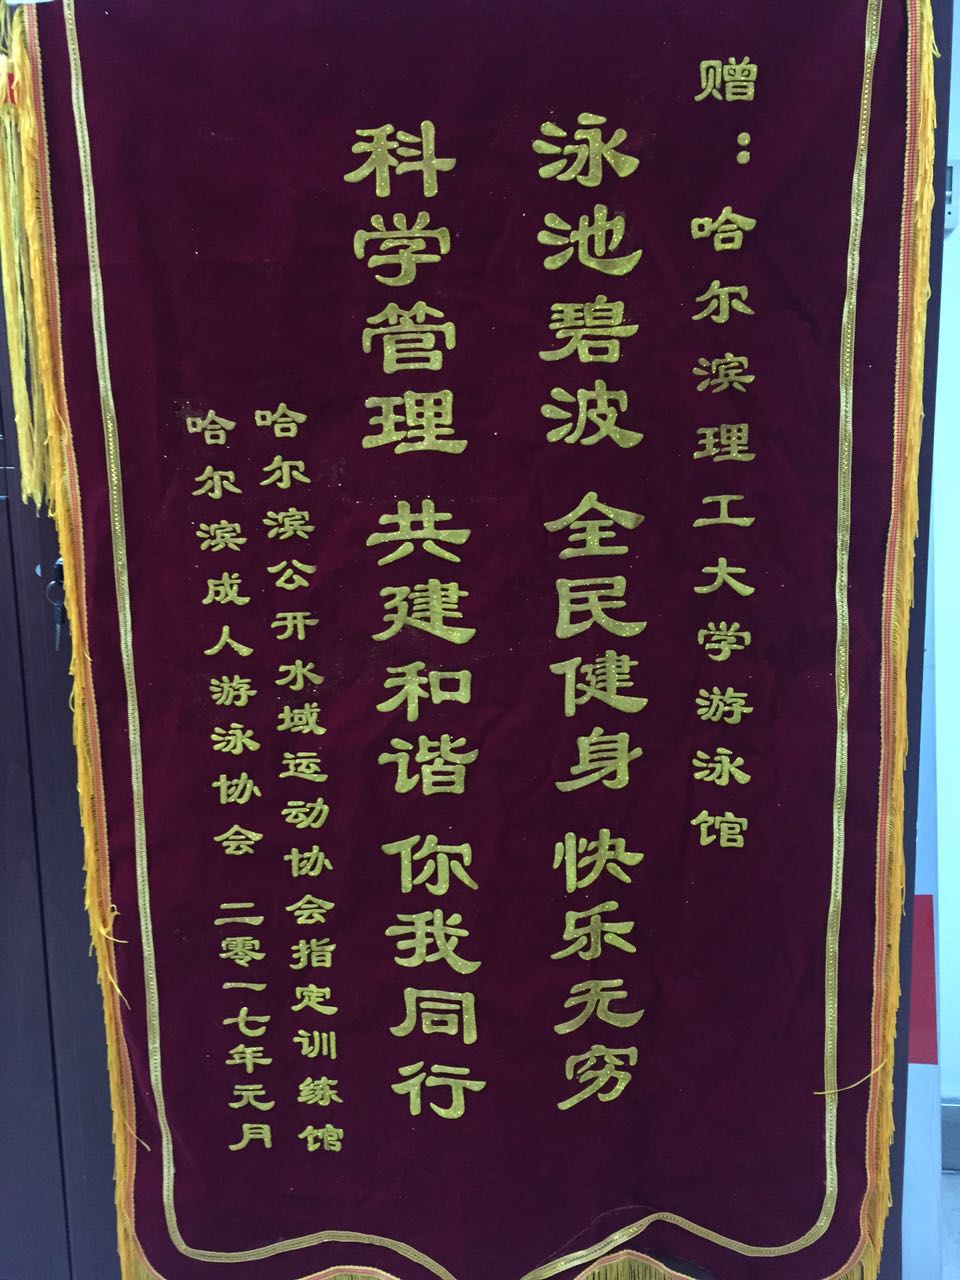 赠：哈尔滨理工大学游泳馆
泳池碧波 全民健身 快乐无穷
科学管理 共建和谐 你我同行
哈尔滨公开水域运动协会指定训练馆
哈尔滨成人游泳协会 二零一七年元月